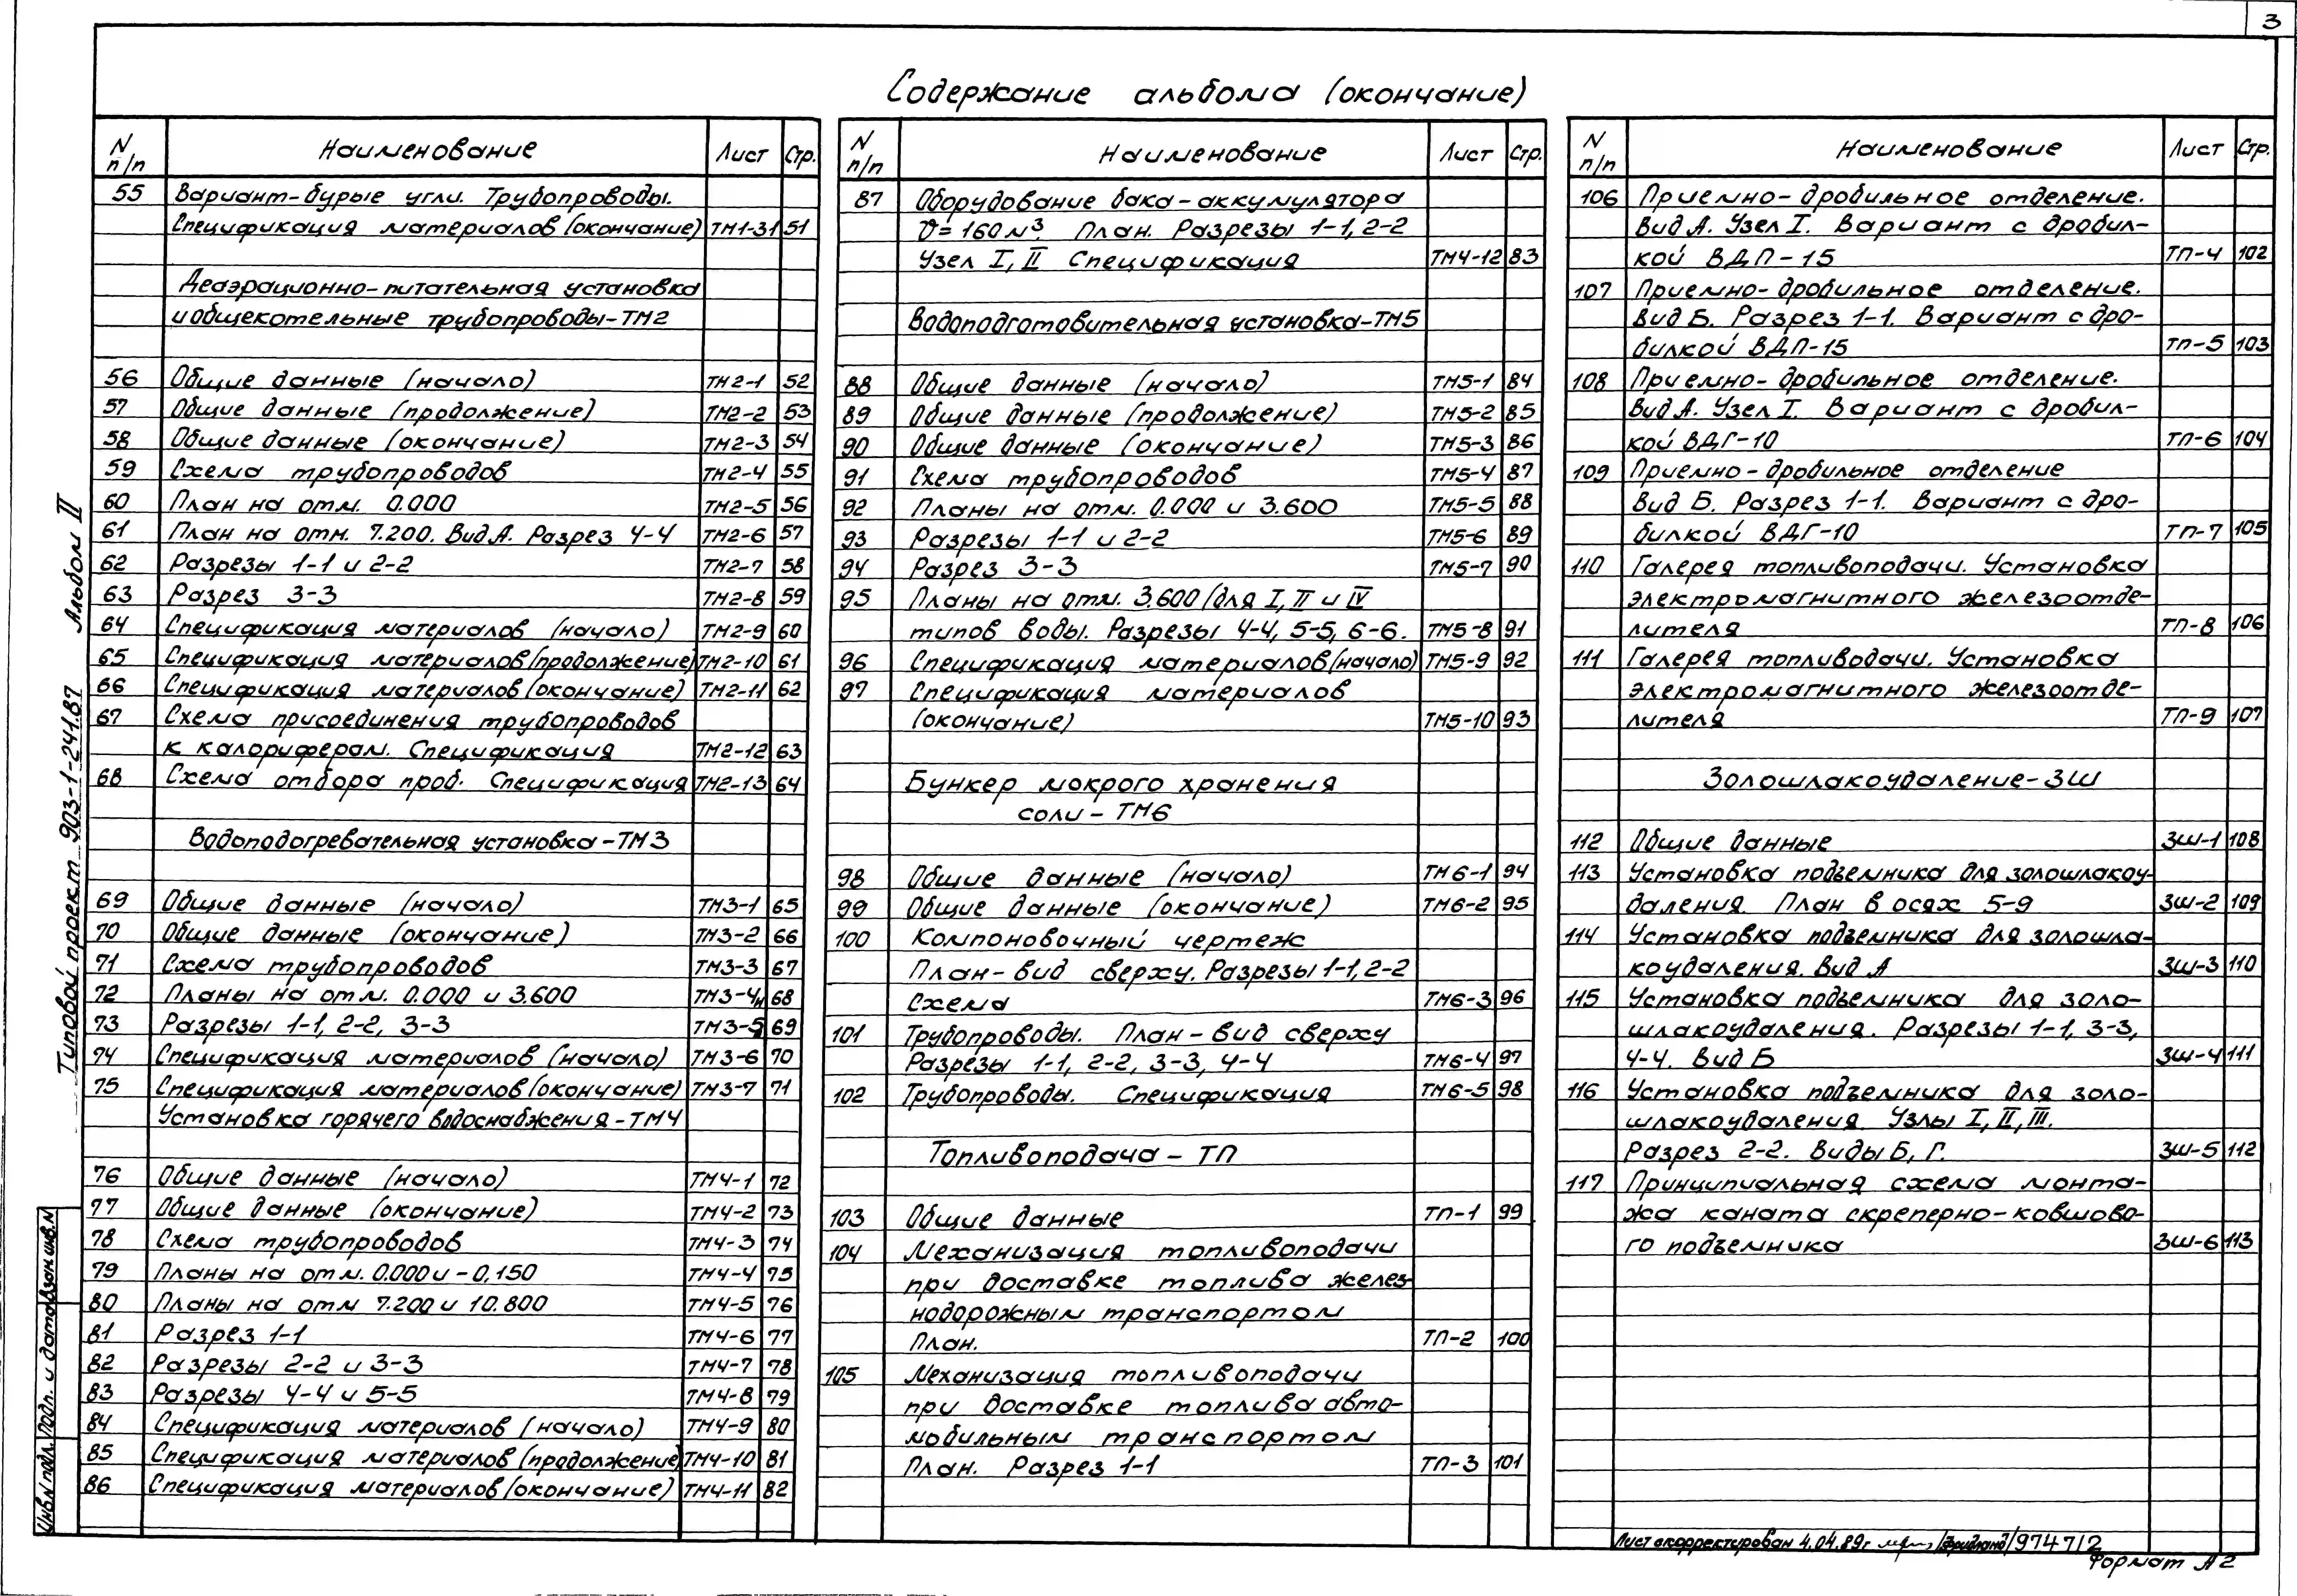 3
Содержание альбома (окончание)
N п/п Наименование Лист Стр.
55 Вариант-бурые угли. Трубопроводы.
Спецификация материалов (окончание) ТМ1-31 51
Деаэрационно-питательная установка
и общекотельные трубопроводы-ТМ2
56 Общие данные (начало) ТМ2-1 52
57 Общие данные (продолжение) ТМ2-2 53
58 Общие данные (окончание) ТМ2-3 54
59 Схема трубопроводов ТМ2-4 55
60 План на отм. 0.000 ТМ2-5 56
61 План на отм. 7.200. Вид А. Разрез 4-4 ТМ2-6 57
62 Разрезы 1-1 и 2-2 ТМ2-7 58
63 Разрез 3-3 ТМ2-8 59
64 Спецификация материалов (начало) ТМ2-9 60
65 Спецификация материалов (продолжение) ТМ2-10 61
66 Спецификация материалов (окончание) ТМ2-11 62
67 Схема присоединения трубопроводов
к калориферам. Спецификация ТМ2-12 63
68 Схема отбора проб. Спецификация ТМ2-13 64
Водоподогревательная установка-ТМ3
69 Общие данные (начало) ТМ3-1 65
70 Общие данные (окончание) ТМ3-2 66
71 Схема трубопроводов ТМ3-3 67
72 Планы на отм. 0.000 и 3.600 ТМ3-4н 68
73 Разрезы 1-1, 2-2, 3-3 ТМ3-5 69
74 Спецификация материалов (начало) ТМ3-6 70
75 Спецификация материалов (окончание) ТМ3-7 71
Установка горячего водоснабжения-ТМ4
76 Общие данные (начало) ТМ4-1 72
77 Общие данные (окончание) ТМ4-2 73
78 Схема трубопроводов ТМ4-3 74
79 Планы на отм. 0.000 и -0,150 ТМ4-4 75
80 Планы на отм 7.200 и 10.800 ТМ4-5 76
81 Разрез 1-1 ТМ4-6 77
82 Разрезы 2-2 и 3-3 ТМ4-7 78
83 Разрезы 4-4 и 5-5 ТМ4-8 79
84 Спецификация материалов (начало) ТМ4-9 80
85 Спецификация материалов (продолжение) ТМ4-10 81
86 Спецификация материалов (окончание) ТМ4-11 82
N п/п Наименование Лист Стр.
87 Оборудование бака-аккумулятора
V=160 м³ План. Разрезы 1-1, 2-2
Узел I, II Спецификация ТМ4-12 83
Водоподготовительная установка-ТМ5
88 Общие данные (начало) ТМ5-1 84
89 Общие данные (продолжение) ТМ5-2 85
90 Общие данные (окончание) ТМ5-3 86
91 Схема трубопроводов ТМ5-4 87
92 Планы на отм. 0.000 и 3.600 ТМ5-5 88
93 Разрезы 1-1 и 2-2 ТМ5-6 89
94 Разрез 3-3 ТМ5-7 90
95 Планы на отм. 3.600 (для I, II и IV
типов воды. Разрезы 4-4, 5-5, 6-6. ТМ5-8 91
96 Спецификация материалов (начало) ТМ5-9 92
97 Спецификация материалов
(окончание) ТМ5-10 93
Бункер мокрого хранения
соли - ТМ6
98 Общие данные (начало) ТМ6-1 94
99 Общие данные (окончание) ТМ6-2 95
100 Компоновочный чертеж
План-вид сверху. Разрезы 1-1, 2-2
Схема ТМ6-3 96
101 Трубопроводы. План-вид сверху
Разрезы 1-1, 2-2, 3-3, 4-4 ТМ6-4 97
102 Трубопроводы. Спецификация ТМ6-5 98
Топливоподача - ТП
103 Общие данные ТП-1 99
104 Механизация топливоподачи
при доставке топлива желез-
нодорожным транспортом
План. ТП-2 100
105 Механизация топливоподачи
при доставке топлива авто-
мобильным транспортом
План. Разрез 1-1 ТП-3 101
N п/п Наименование Лист Стр.
106 Приемно-дробильное отделение.
Вид А. Узел I. Вариант с дробил-
кой ВДП-15 ТП-4 102
107 Приемно-дробильное отделение.
Вид Б. Разрез 1-1. Вариант с дро-
билкой ВДП-15 ТП-5 103
108 Приемно-дробильное отделение.
Вид А. Узел I. Вариант с дробил-
кой ВДГ-10 ТП-6 104
109 Приемно-дробильное отделение
Вид Б. Разрез 1-1. Вариант с дро-
билкой ВДГ-10 ТП-7 105
110 Галерея топливоподачи. Установка
электромагнитного железоотде-
лителя ТП-8 106
111 Галерея топливодачи. Установка
электромагнитного железоотде-
лителя ТП-9 107
Золошлакоудаление-ЗШ
112 Общие данные ЗШ-1 108
113 Установка подъемника для золошлакоу-
даления. План в осях 5-9 ЗШ-2 109
114 Установка подъемника для золошла-
коудаления. Вид А ЗШ-3 110
115 Установка подъемника для золо-
шлакоудаления. Разрезы 1-1, 3-3,
4-4. Вид Б ЗШ-4 111
116 Установка подъемника для золо-
шлакоудаления. Узлы I, II, III.
Разрез 2-2. Виды Б, Г. ЗШ-5 112
117 Принципиальная схема монта-
жа каната скреперно-ковшово-
го подъемника ЗШ-6 113
Типовой проект 903-1-241.87 Альбом II
Инв.N подл. Подп. и дата Взам инв.N
Лист скорректирован 4.04.89г /Фридланд/ 9747/2
Формат А2